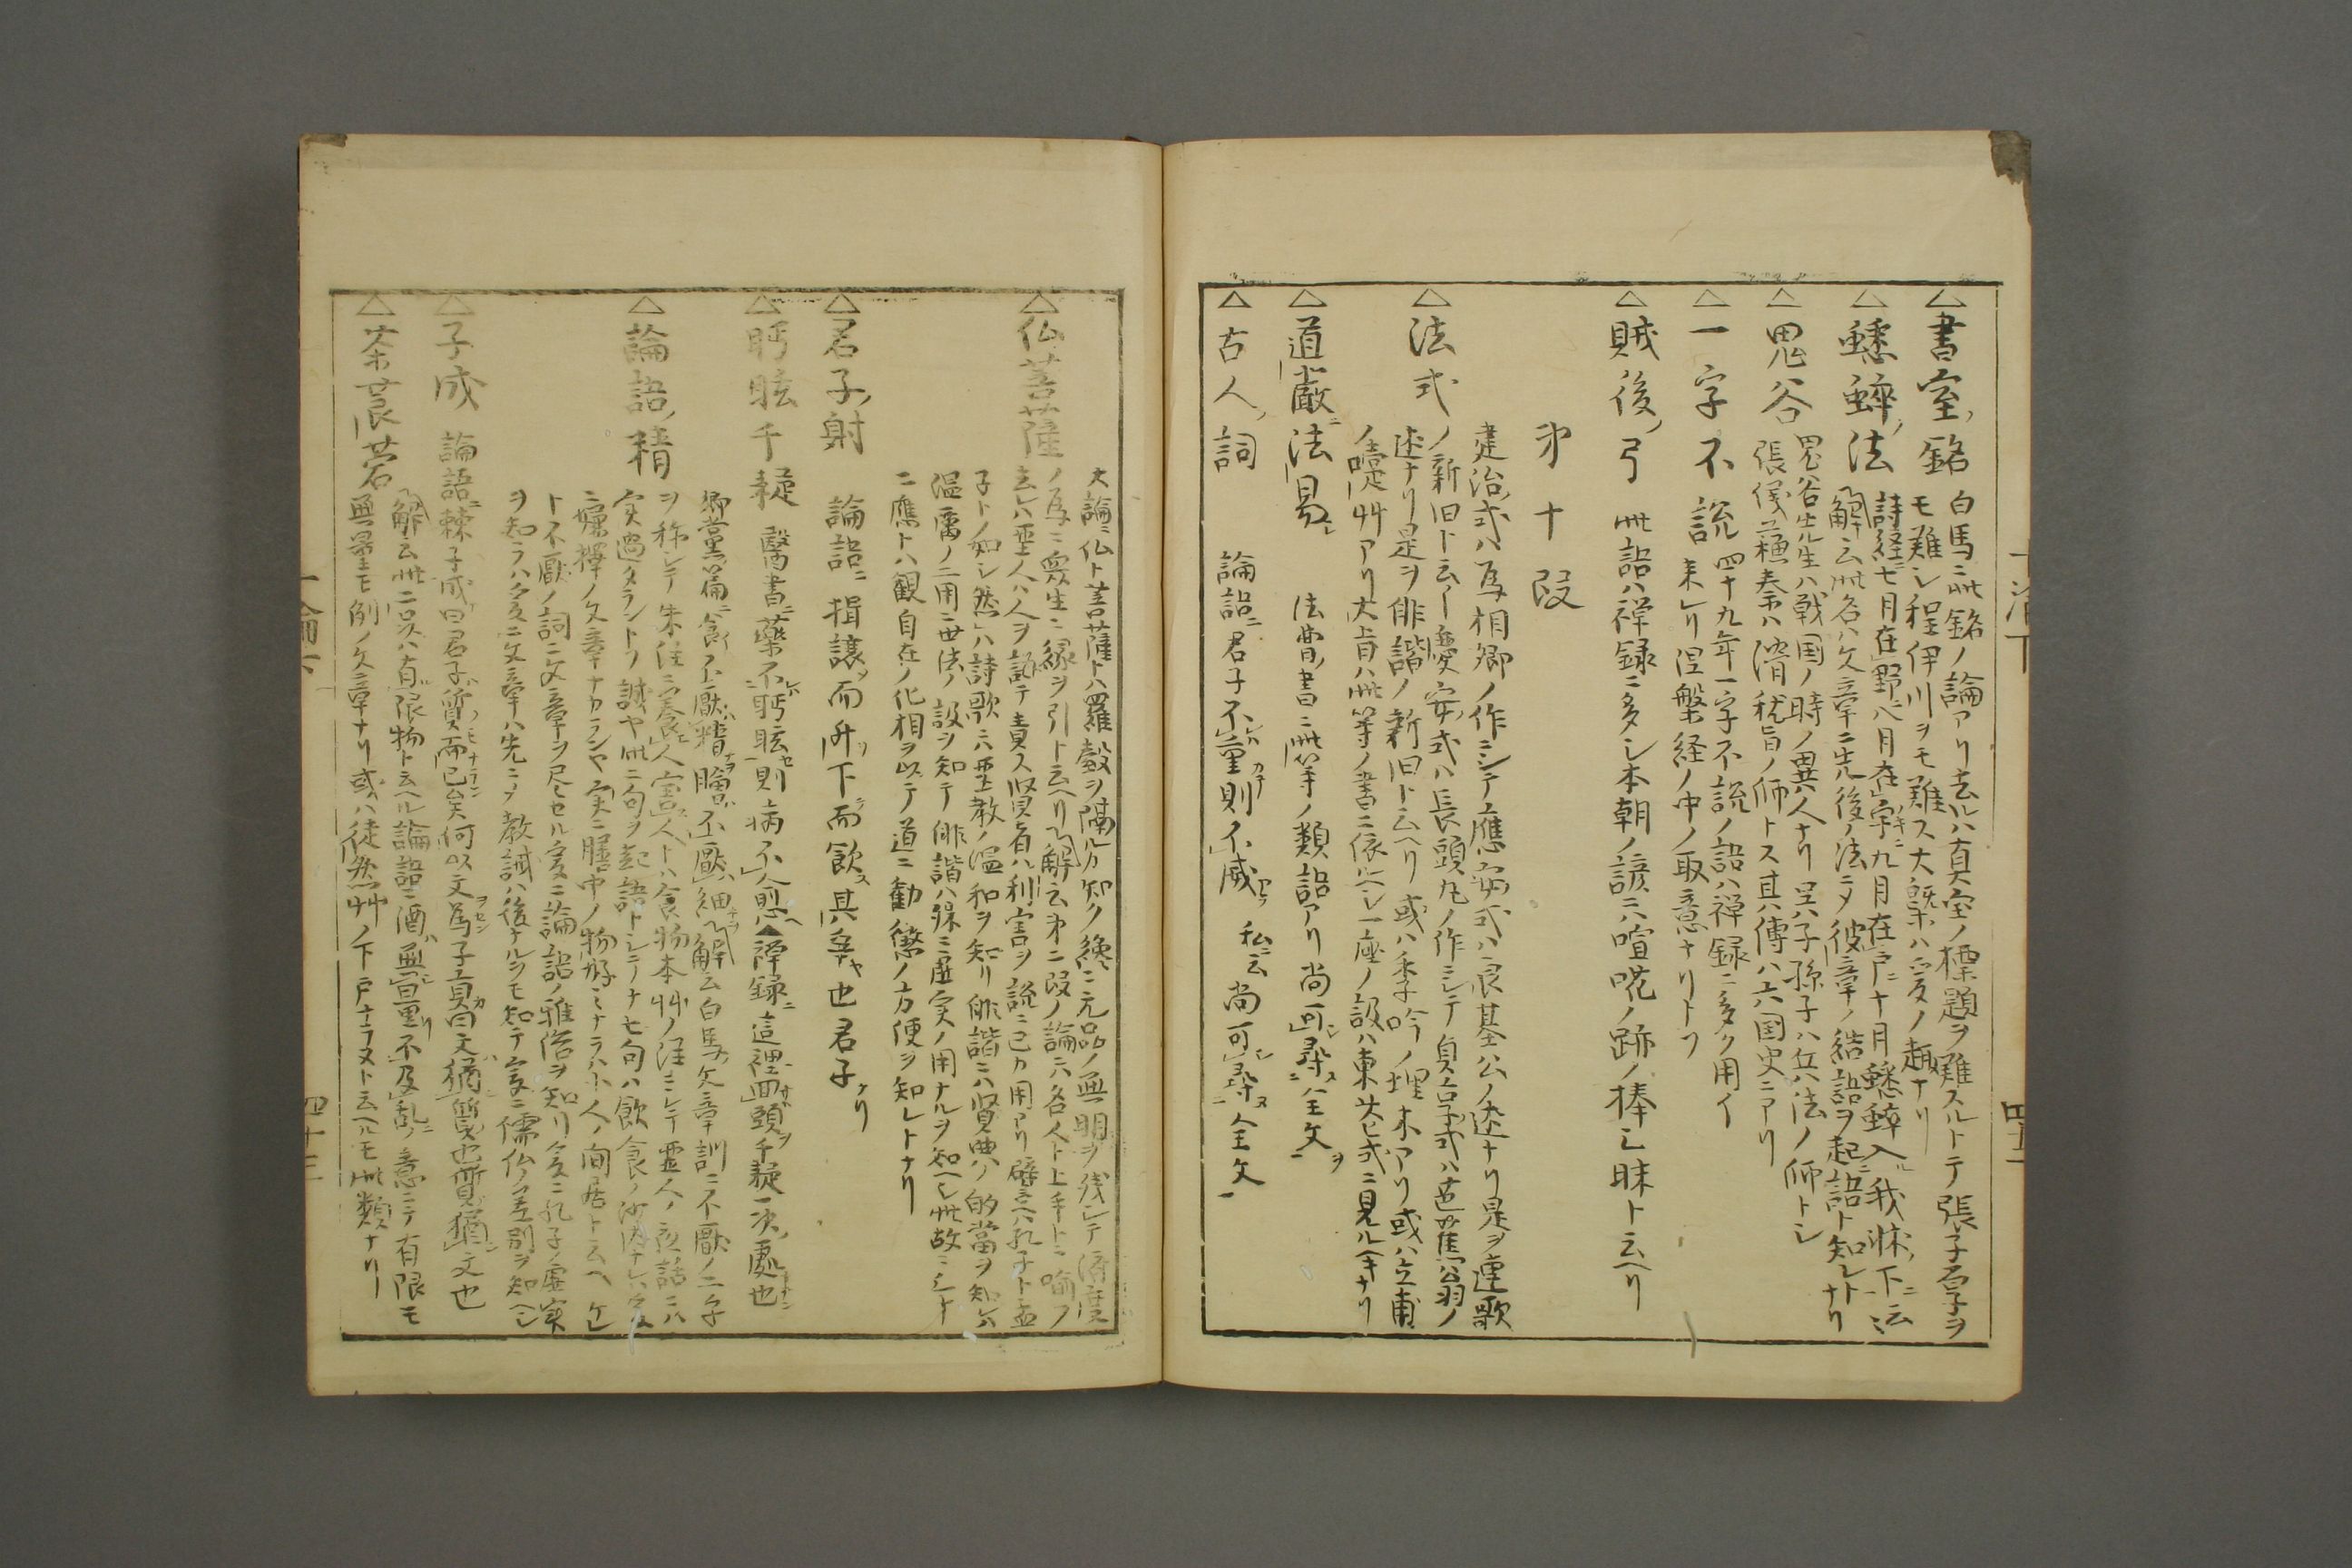 △書室ノ銘 白馬ニ此銘ノ論アリ去ルハ真室ノ標題ヲ難スルトテ張子厚ヲ
モ難シ程伊川ヲモ難ス大概ハ爰ノ趣ナリ
△蟋蟀ノ法 詩経ニ七月在野八月在宇九月在戸十月蟋蟀入我牀下ニ云々
解云此名ハ文章ニ先後ノ法ニメ彼章ノ結語ヲ起語ト知レトナリ
△鬼谷 鬼谷先生ハ戦国ノ時ノ異人ナリ呈ハ子孫子ハ兵法ノ師トシ
張儀蘓秦ハ滑稽旨ノ師トス其傳ハ六国史ニアリ
△一字不説 四十九年一字不説ノ語ハ禅録ニ多ク用イ
来レリ涅槃経ノ中ノ取意ナリトソ
△賊後ノ弓 此語ハ禅録ニ多シ本朝ノ諺ニハ喧𠵅ノ跡ノ棒乙昧ト云ヘリ
㐧十段
△法式 建治ノ式ハ為相卿ノ作ニシテ應安ノ式ハ良基公ノ述ナリ是ヲ連歌
ノ新旧ト云フ慶安ノ式ハ長頭丸ノ作ニシテ貞享ノ式ハ芭蕉翁ノ
述ナリ是ヲ俳諧ノ新旧ト云ヘリ或ハ季吟ノ埋木アリ或ハ立甫
ノ嚏艸アリ大旨ハ此等ノ書ニ依ルヘシ一座ノ設ハ東花式ニ見ルヘキナリ
△道厳法易 法曹ノ書ニ此等ノ類語アリ尚可尋全文
△古人ノ詞 論語ニ君子不重則不威 私云尚可尋全文
△仏菩薩 大論ニ仏ト菩薩トハ羅縠ヲ隔ルカ如ク纔ニ元品ノ無明ヲ残シテ済度
ノ為ニ衆生ニ縁ヲ引ト云ヘリ解云㐧二段ノ論ニハ名人ト上手トニ喩フ
去レハ聖人ハ人ヲ誠テ責ス賢者ハ利害ヲ説ニ己カ用アリ譬ヘハ孔子ト孟
子トノ如シ然レハ詩歌ニハ聖教ノ温和ヲ知リ俳諧ニハ賢典ノ的當ヲ知ル
温厲ノ二用ニ世法ノ設ヲ知テ俳諧ハ殊ニ虚実ノ用ナルヲ知ヘシ此故ニ三十
二應トハ観自在ノ化相ヲ以テ道ニ勧懲ノ方便ヲ知レトナリ
△君子ノ射 論語ニ揖譲而升下而飲其争也君子ナリ
△眄眩千疑 醫書ニ藥不眄眩則病不愈▲禅録ニ這裡回頭千疑一決ノ處也
△論語ノ精 郷黨篇ニ食ハ不厭精膾不厭細解云白馬ノ文章訓ニ不厭ノ二字
ヲ称シテ朱注ニ養人害人トハ食物本艸ノ注ニシテ聖人ノ應話ニハ
実過タラントソ誠ヤ此二句ヲ起語トシテ十七句ハ飲食ノ沙汰ナレハ爰
ニ爛擇ノ文章ナカランヤ実ニ膳中ノ物好ミナラハ小人ノ間居ト云ヘケレ
ト不厭ノ詞ニ文章ヲ尽セル爰ニ論語ノ雅俗ヲ知リ爰ニ孔子ノ虚実
ヲ知ラハ爰ニ文章ハ先ニメ教誡ハ後ナルヲモ知テ爰ニ儒仏ノ差別ヲ知ヘシ
△子成 論語ニ棘子成曰君子質而已矣何以文為子貢曰文猶質也質猶文也
△茶莨菪 解云此二只ハ有限物ト云ヘル論語ニ酒無量不及乱ノ意ニテ有限モ
無量モ例ノ文章ナリ或ハ徒然艸ノ下戸ナラヌト云ヘルモ此類ナリ
四十三